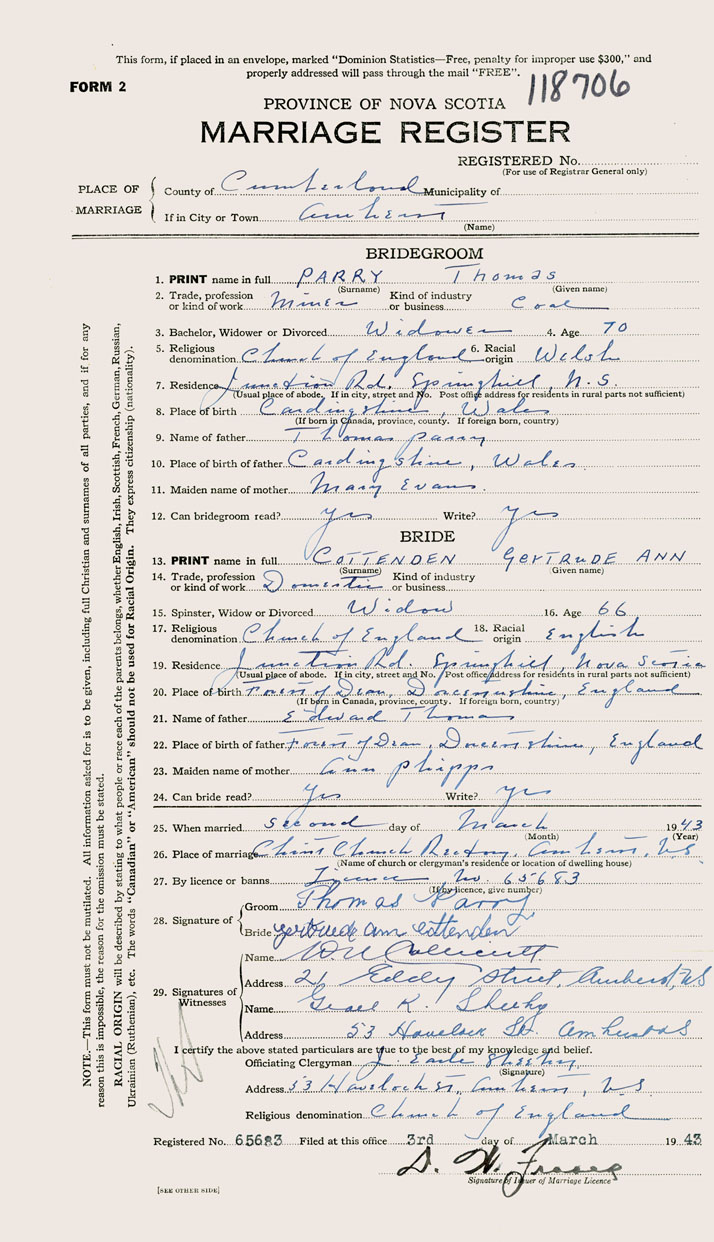 This form, if placed in an envelope, marked "Dominion Statistics—Free, penalty for improper use $300," and
properly addressed will pass through the mail "FREE".
118706
FORM 2
PROVINCE OF NOVA SCOTIA
MARRIAGE REGISTER
REGISTERED No.
(For use of Registrar General only)
PLACE OF MARRIAGE
County of Cumberland Municipality of
If in City or Town Amherst
(Name)
BRIDEGROOM
1. PRINT name in full PARRY Thomas
(Surname) (Given name)
2. Trade, profession or kind of work Miner Kind of industry or business Coal
3. Bachelor, Widower or Divorced Widower 4. Age 70
5. Religious denomination Church of England 6. Racial origin Welsh
7. Residence Junction Rd. Springhill, N.S.
(Usual place of abode. If in city, street and No. Post office address for residents in rural parts not sufficient)
8. Place of birth Cardingshire, Wales
(If born in Canada, province, county. If foreign born, country)
9. Name of father Thomas Parry
10. Place of birth of father Cardingshire, Wales
11. Maiden name of mother Mary Evans.
12. Can bridegroom read? yes Write? yes
BRIDE
13. PRINT name in full COTTENDEN GERTRUDE ANN
(Surname) (Given name)
14. Trade, profession or kind of work Domestic Kind of industry or business
15. Spinster, Widow or Divorced Widow 16. Age 66
17. Religious denomination Church of England 18. Racial origin English
19. Residence Junction Rd. Springhill, Nova Scotia
(Usual place of abode. If in city, street and No. Post office address for residents in rural parts not sufficient)
20. Place of birth Forest of Dean, England
(If born in Canada, province, county. If foreign born, country)
21. Name of father Edward Thomas
22. Place of birth of father Forest of Dean, England
23. Maiden name of mother Ann Phipps
24. Can bride read? yes Write? yes
25. When married second day of March 1943
(Month) (Year)
26. Place of marriage Christ Church Rectory, Amherst, N.S.
(Name of church or clergyman's residence or location of dwelling house)
27. By licence or banns Licence No. 65683
(If by licence, give number)
28. Signature of
Groom Thomas Parry
Bride gertrude ann cottenden
29. Signatures of Witnesses
Name
Address 21 Eddy Street, Amherst, NS
Name K. Sheehy
Address 53 Havelock St. Amherst NS
I certify the above stated particulars are true to the best of my knowledge and belief.
Officiating Clergyman J. Earle Sheehy
(Signature)
Address 53 Havelock St, Amherst, N.S.
Religious denomination Church of England
Registered No. 65683 Filed at this office 3rd day of March 1943
Signature of Issuer of Marriage Licence
[SEE OTHER SIDE]
NOTE.—This form must not be mutilated. All information asked for is to be given, including full Christian and surnames of all parties, and if for any
reason this is impossible, the reason for the omission must be stated.
RACIAL ORIGIN will be described by stating to what people or race each of the parents belongs, whether English, Irish, Scottish, French, German, Russian,
Ukrainian (Ruthenian), etc. The words "Canadian" or "American" should not be used for Racial Origin. They express citizenship (nationality).